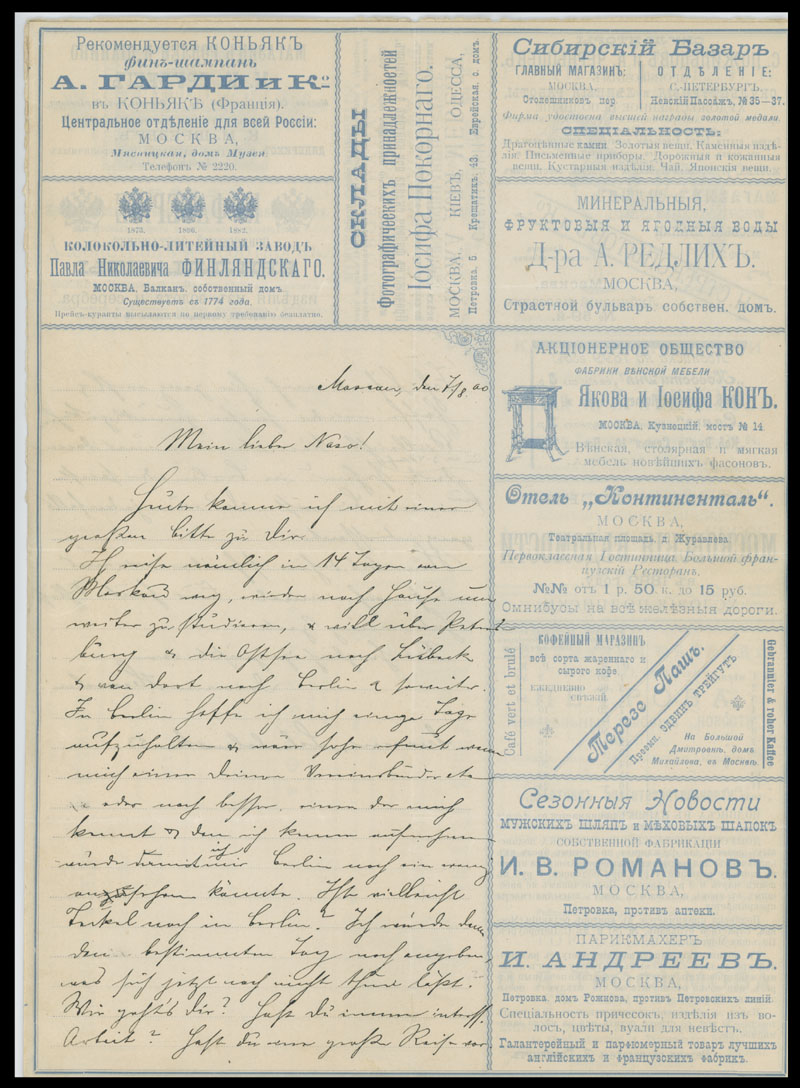 Рекомендуется КОНЬЯКЪ
финъ-шампанъ
А. ГАРДИ и К-о
въ КОНЬЯКѢ (Франція).
Центральное отдѣленіе для всей Россіи:
МОСКВА,
Мясницкая, домъ Музея
Телефонъ № 2220.
1873. 1866. 1882.
КОЛОКОЛЬНО-ЛИТЕЙНЫЙ ЗАВОДЪ
Павла Николаевича ФИНЛЯНДСКАГО.
МОСКВА, Балкан. собственный домъ.
Существуетъ съ 1774 года.
Прейсъ-куранты высылаются по первому требованію безплатно.
СКЛАДЫ
Фотографическихъ принадлежностей
Іосифа Покорнаго.
МОСКВА, КІЕВЪ, ОДЕССА,
Петровка, 6 Крещатикъ, 43. Еврейская, с. домъ.
Сибирскій Базаръ
ГЛАВНЫЙ МАГАЗИНЪ:
МОСКВА.
Столешниковъ пер.
ОТДѢЛЕНІЕ:
С.-ПЕТЕРБУРГЪ.
Невскій Пассажъ, № 35—37.
Фирма удостоена высшей награды золотой медали.
СПЕЦІАЛЬНОСТЬ:
Драгоцѣнные камни. Золотыя вещи. Каменныя издѣ-
лія. Письменные приборы. Дорожныя и кожанныя
вещи. Кустарныя издѣлія. Чай. Японскія вещи.
МИНЕРАЛЬНЫЯ,
ФРУКТОВЫЯ И ЯГОДНЫЯ ВОДЫ
Д-ра А. РЕДЛИХЪ.
МОСКВА,
Страстной бульваръ собствен. домъ.
АКЦІОНЕРНОЕ ОБЩЕСТВО
ФАБРИКИ ВѢНСКОЙ МЕБЕЛИ
Якова и Іосифа КОНЪ.
МОСКВА, Кузнецкій мостъ № 14.
Вѣнская, столярная и мягкая
мебель новѣйшихъ фасоновъ.
Отель „Континенталь“.
МОСКВА,
Театральная площадь, д. Журавлева.
Первоклассная Гостинница. Большой фран-
пузскій Ресторанъ.
№№ отъ 1 р. 50 к. до 15 руб.
Омнибусы на всѣ желѣзныя дороги.
КОФЕЙНЫЙ МАГАЗИНЪ
всѣ сорта жаренаго и
сырого кофе
ЕЖЕДНЕВНО
СВѢЖІЙ
Café vert et brulé
Терезе Пашъ.
Преемн. ЭДВИНЪ ТРЕЙГУТЪ
На Большой
Дмитровкѣ, домъ
Михайлова, въ Москвѣ.
Gebrannter & roher Kaffee
Сезонныя Новости
МУЖСКИХЪ ШЛЯПЪ и МѢХОВЫХЪ ШАПОКЪ
СОБСТВЕННОЙ ФАБРИКАЦІИ
И. В. РОМАНОВЪ.
МОСКВА,
Петровка, противъ аптеки.
ПАРИКМАХЕРЪ
И. АНДРЕЕВЪ.
МОСКВА,
Петровка, домъ Рожнова, противъ Петровскихъ линій.
Спеціальность причесокъ, издѣлія изъ во-
лосъ, цвѣты, вуали для невѣстъ.
Галантерейный и парфюмерный товаръ лучшихъ
англійскихъ и французскихъ фабрикъ.
Moskau, den 7/8 00
Mein lieber Naso!
Heute komme ich mit einer
großen Bitte zu Dir.
Ich reise nämlich in 14 Tagen von
Moskau weg, wieder nach Hause um
weiter zu studieren, & will über Peters
burg & die Ostsee nach Lübeck
& von dort nach Berlin & soweiter.
In Berlin hoffe ich mich einige Tage
aufzuhalten & wäre sehr erfreut wenn
mich einer Deiner Vereinsbrüder etc
oder noch besser, einer der mich
kennt & den ich kenne aufnehmen
würde damit ich mir Berlin noch ein wenig
ansehen könnte. Ist vielleicht
Teckel noch in Berlin? Ich würde dann
den bestimmten Tag noch angeben,
was sich jetzt noch nicht thun läßt.
Wie geht's dir? Hast Du immer intress.
Arbeit? Hast du eine große Reise vor